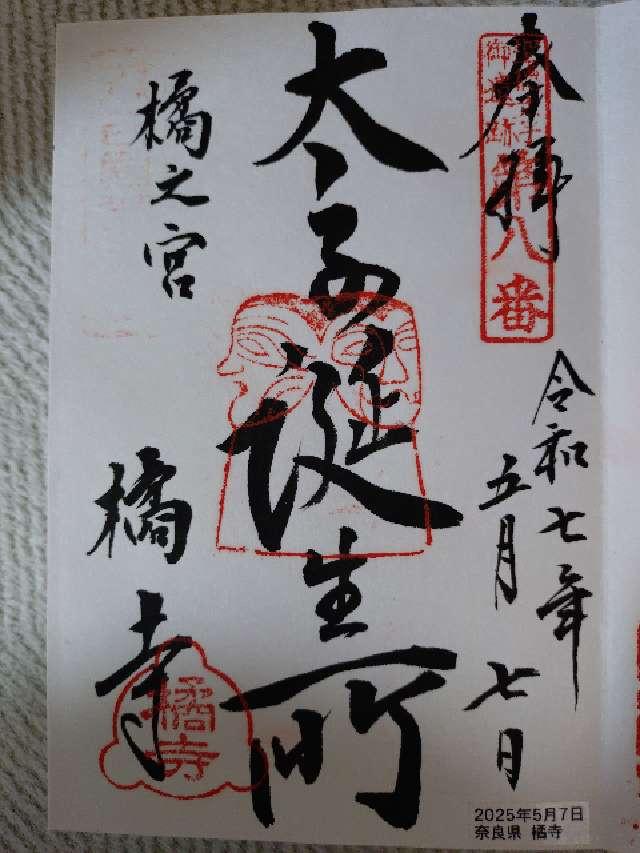 奉拝
御遺跡第八番
令和七年
五月七日
太子誕生所
橘之宮
橘寺
橘寺
2025年5月7日
奈良県 橘寺